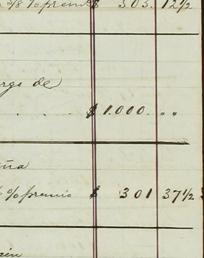 % premio $ 303. 12½
argo de
$ 1.000. „ „
% premio $ 301 37½